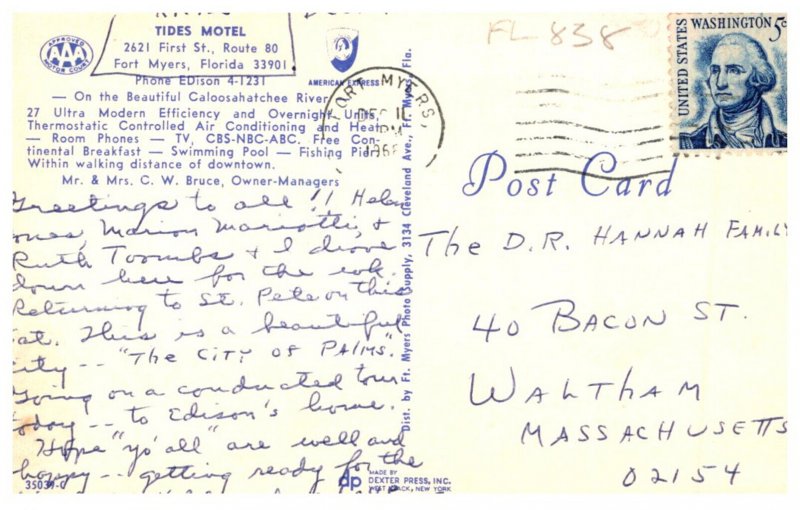 TIDES MOTEL
2621 First St., Route 80
Fort Myers, Florida 33901
Phone EDison 4-1231
AAA
APPROVED
MOTOR COURT
AMERICAN EXPRESS
— On the Beautiful Caloosahatchee River
27 Ultra Modern Efficiency and Overnight Units,
Thermostatic Controlled Air Conditioning and Heat
— Room Phones — TV, CBS-NBC-ABC. Free Con-
tinental Breakfast — Swimming Pool — Fishing Pier
Within walking distance of downtown.
Mr. & Mrs. C. W. Bruce, Owner-Managers
Greetings to all!! Helen
ones, Marion Mariotti, &
Ruth Toombs & I drove
down here for the wk.
Returning to St. Pete on this
at. This is a beautiful
city -- "THE CITY OF PALMS".
Going on a conducted tour
today -- to Edison's home.
Hope "yo'all" are well and
happy -- getting ready for the
35039-C
dp
MADE BY
DEXTER PRESS, INC.
WEST NYACK, NEW YORK
Dist. by Ft. Myers Photo Supply, 3134 Cleveland Ave., Ft. Myers, Fla.
FORT MYERS,
DEC
PM
FL-838
UNITED STATES
WASHINGTON 5c
Post Card
THE D.R. HANNAH FAMILY
40 BACON ST.
WALTHAM
MASSACHUSETTS
02154